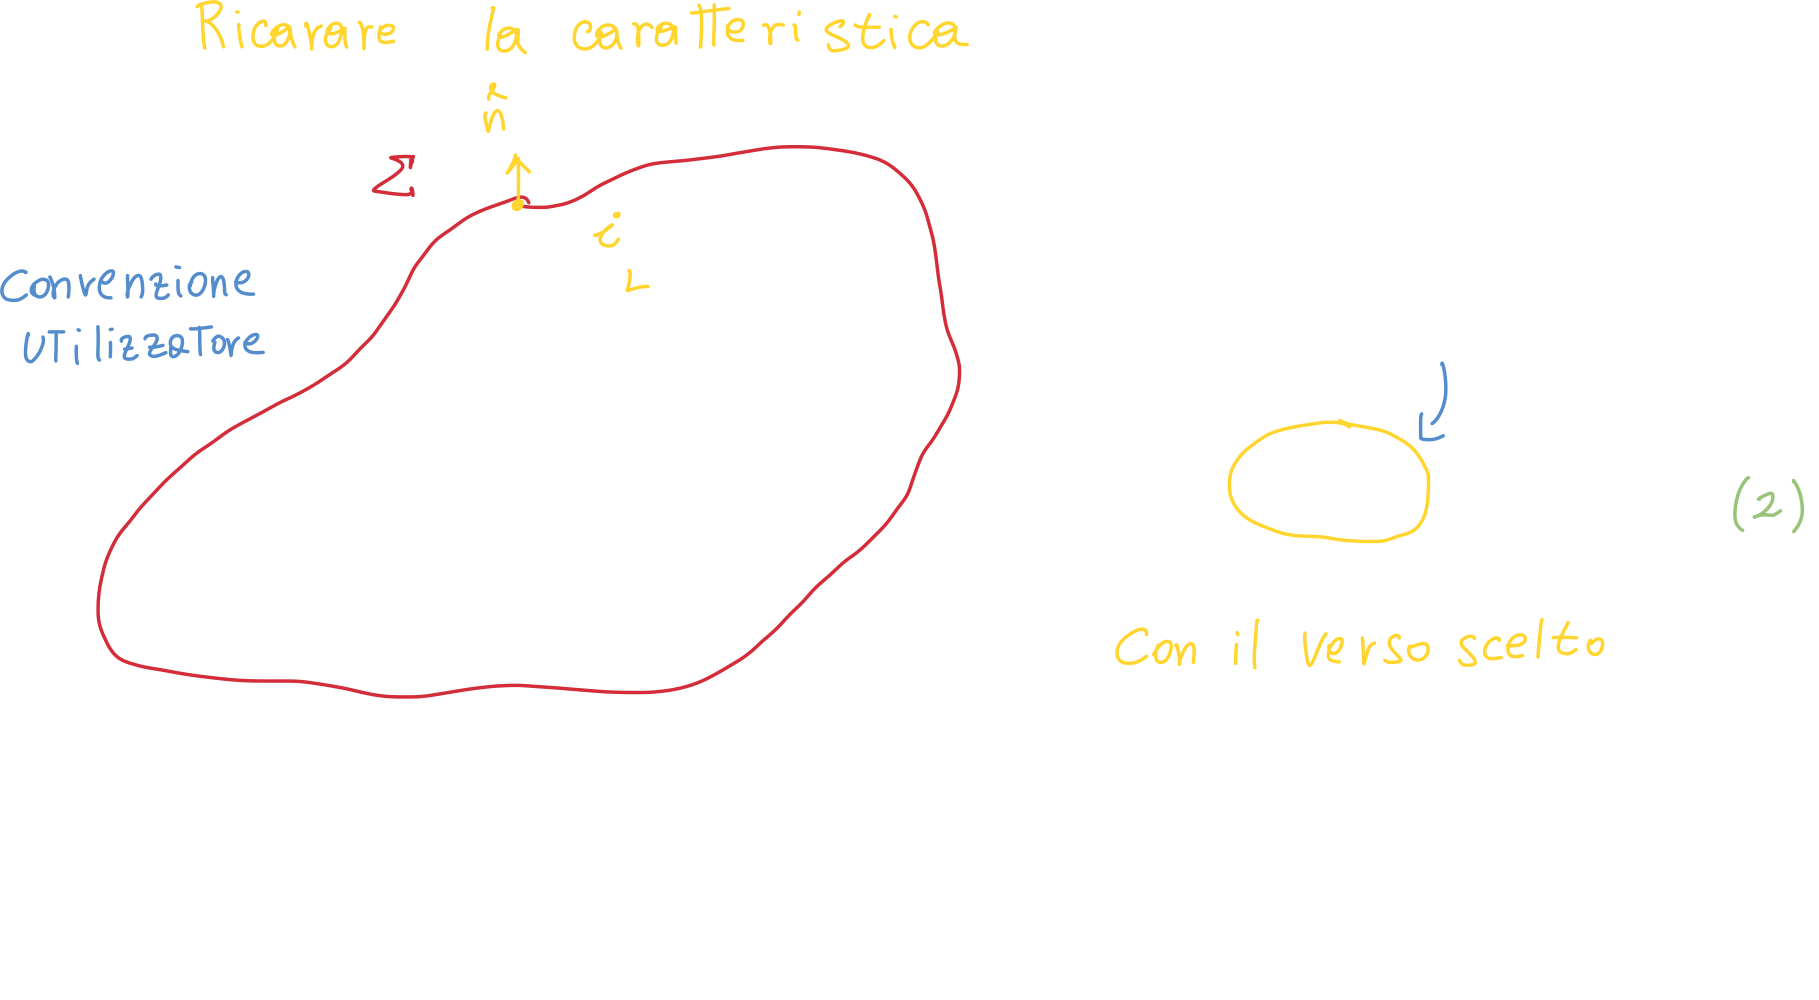 Ricarare la caratteristica
n̂
Σ
i
L
Convenzione
UTilizzaTore
(2)
Con il verso scelto